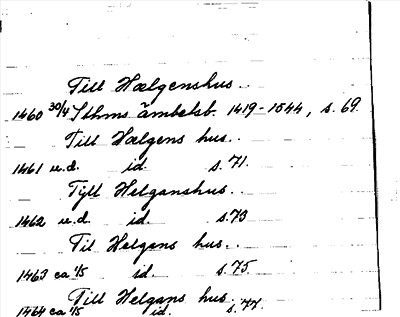 Till Hælgenshus..
1460 30/4 Sthms ämbetsb. 1419-1544, s. 69.
Till Hælgens hus..
1461 u.d. id. s. 71.
Tyll Helganshus..
1462 u.d. id. s. 73
Til Helgens hus..
1463 ca 1/5 id. s. 75.
Till Helgans hus.
1464 ca 1/5 id. s. 77.